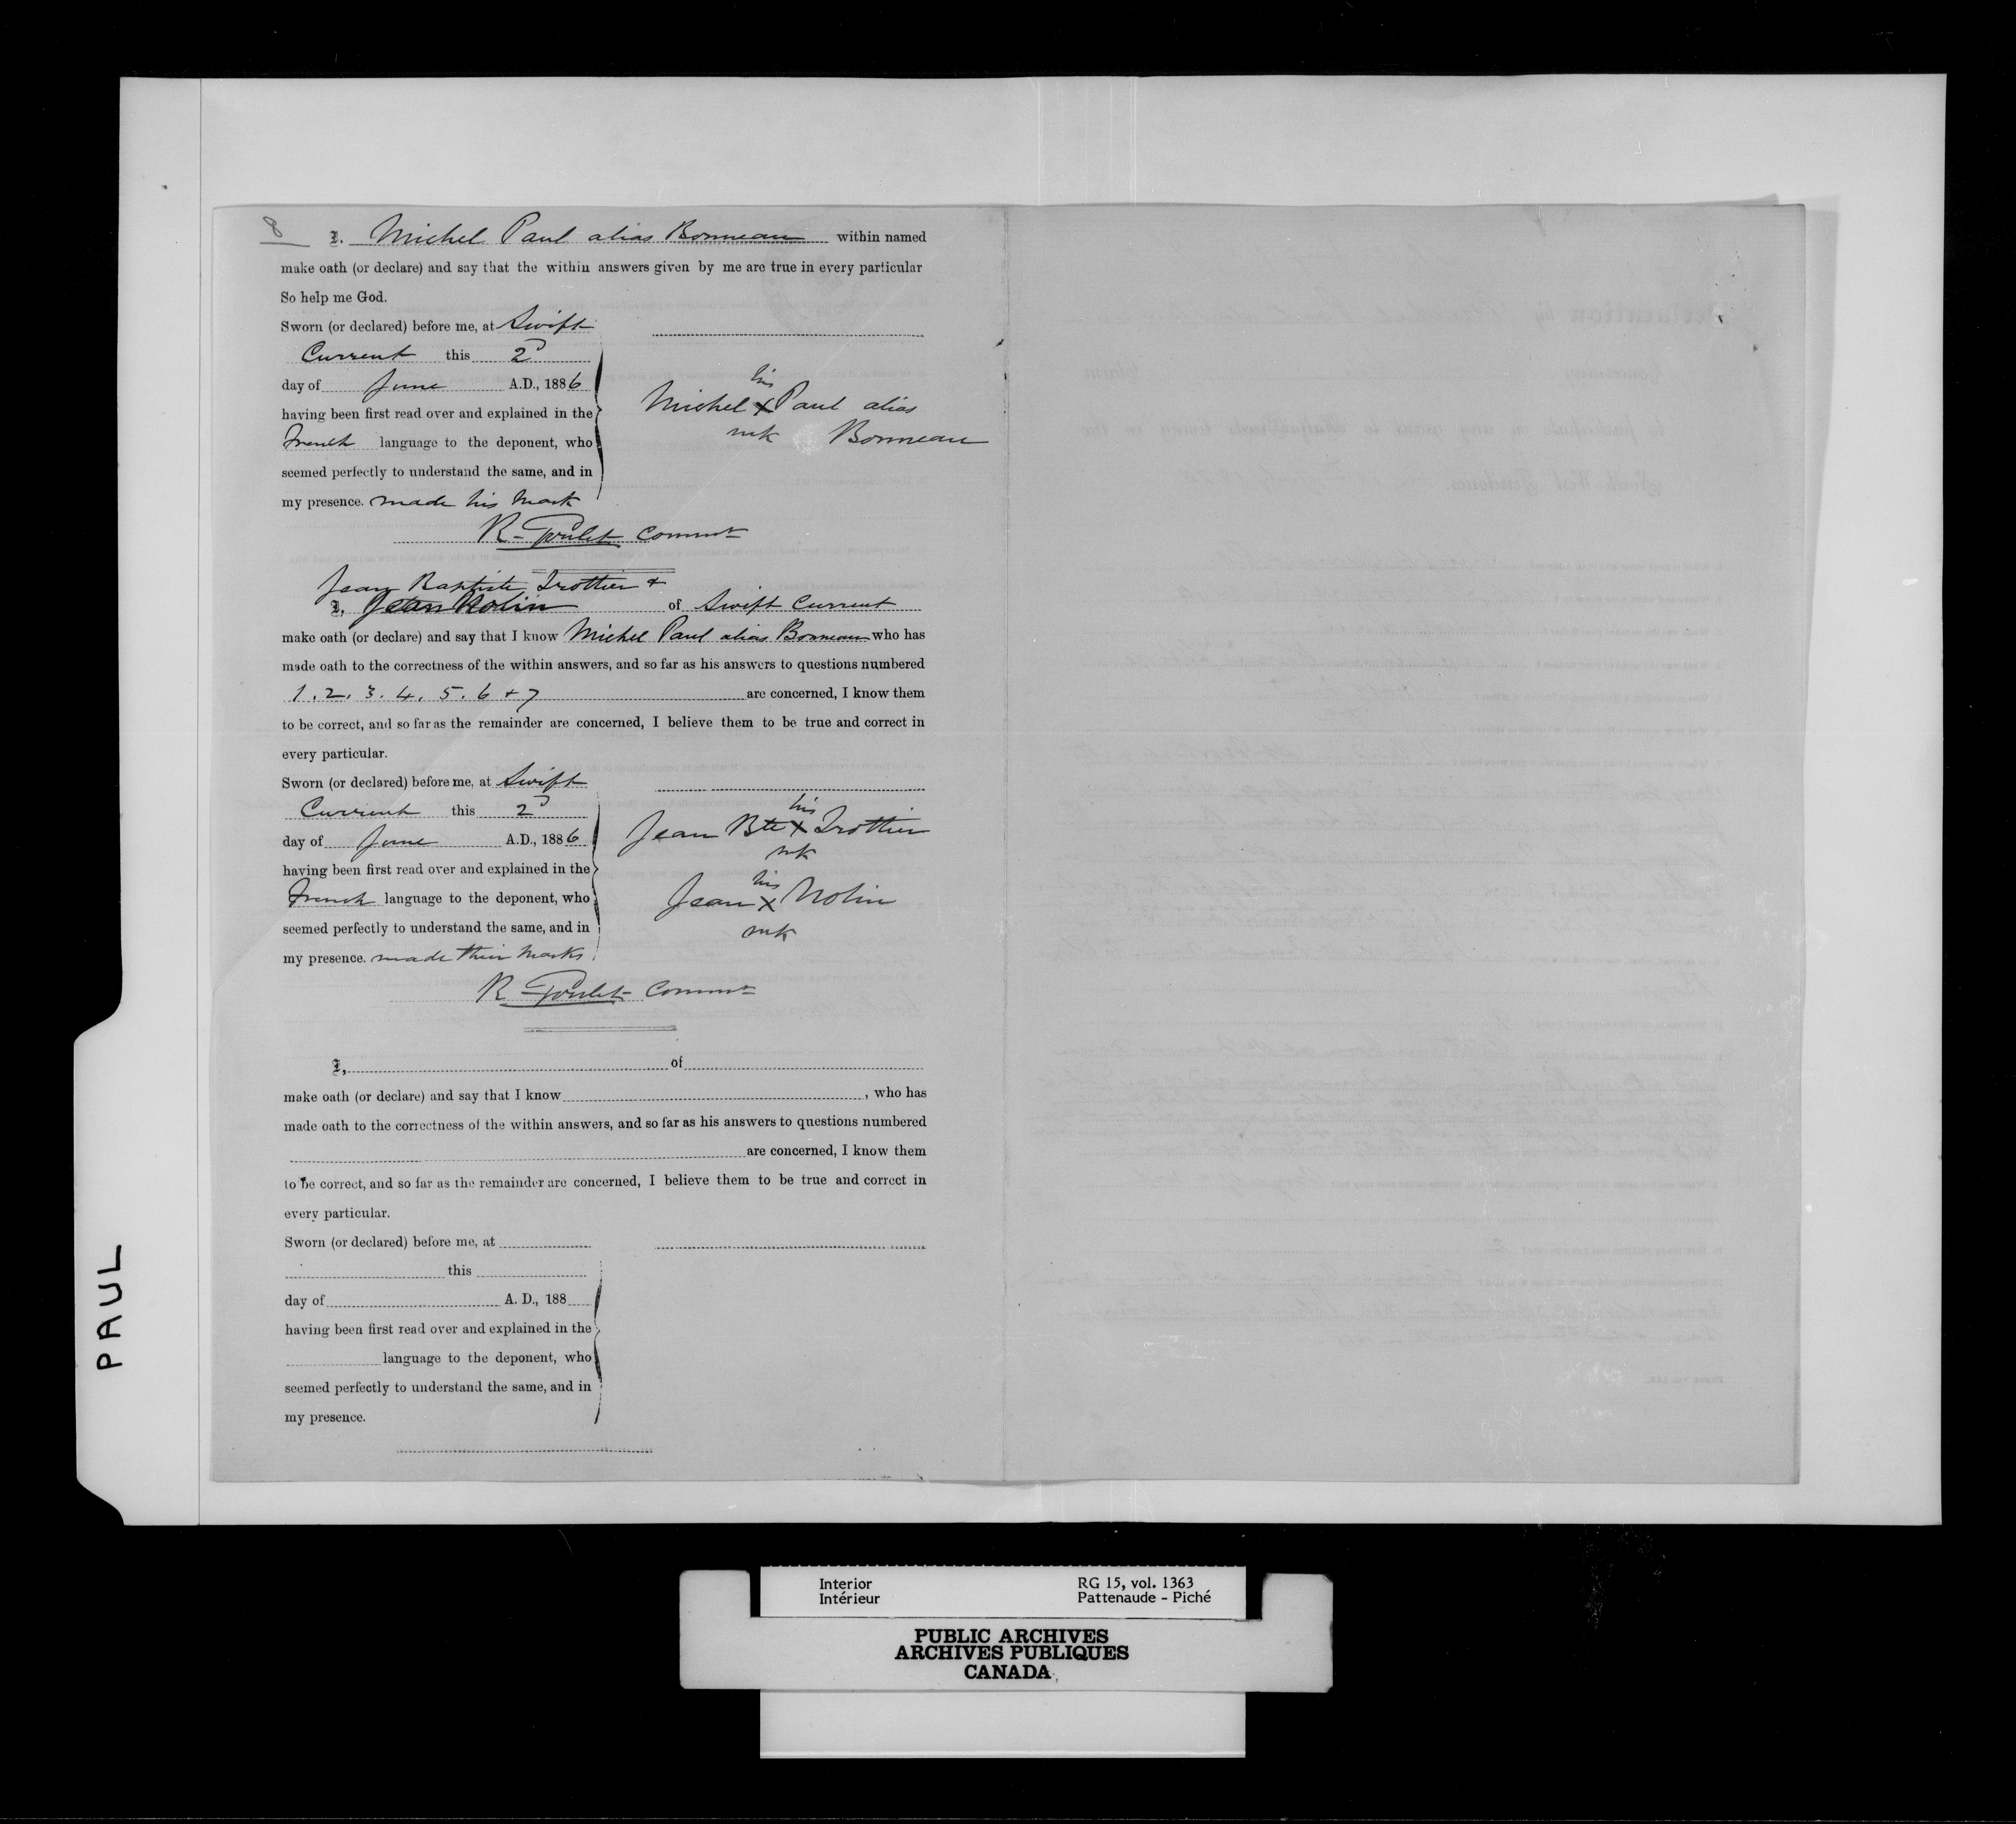 8
I, Michel Paul alias Bonneau within named
make oath (or declare) and say that the within answers given by me are true in every particular
So help me God.
Sworn (or declared) before me, at Swift
Current this 2D
day of June A.D., 1886
having been first read over and explained in the
French language to the deponent, who
seemed perfectly to understand the same, and in
my presence. made his mark
his
Michel X Paul alias
mk Bonneau
R. Goulet Commr
Jean Baptiste Trottier +
I, Jean Nolin of Swift Current
make oath (or declare) and say that I know Michel Paul alias Bonneau who has
made oath to the correctness of the within answers, and so far as his answers to questions numbered
1. 2. 3. 4. 5. 6 + 7 are concerned, I know them
to be correct, and so far as the remainder are concerned, I believe them to be true and correct in
every particular.
Sworn (or declared) before me, at Swift
Current this 2D
day of June A.D., 1886
having been first read over and explained in the
French language to the deponent, who
seemed perfectly to understand the same, and in
my presence. made their marks
his
Jean Bte X Trottier
mk
his
Jean X Nolin
mk
R. Goulet Commr
I, of
make oath (or declare) and say that I know , who has
made oath to the correctness of the within answers, and so far as his answers to questions numbered
are concerned, I know them
to be correct, and so far as the remainder are concerned, I believe them to be true and correct in
every particular.
Sworn (or declared) before me, at
this
day of A. D., 188
having been first read over and explained in the
language to the deponent, who
seemed perfectly to understand the same, and in
my presence.
PAUL
Interior RG 15, vol. 1363
Intérieur Pattenaude - Piché
PUBLIC ARCHIVES
ARCHIVES PUBLIQUES
CANADA